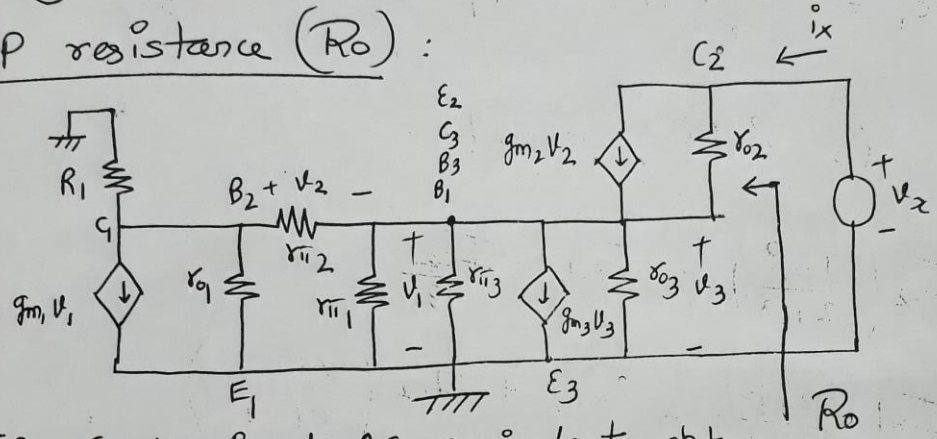 P resistance (Ro) :
ix
C2
E2
C3
B3
B1
gm2 V2
ro2
R1
B2 + V2 -
+
Vx
-
C1
rπ2
gm1 V1
ro1
rπ1
+
V1
-
rπ3
gm3 V3
ro3
+
V3
-
E1
E3
Ro